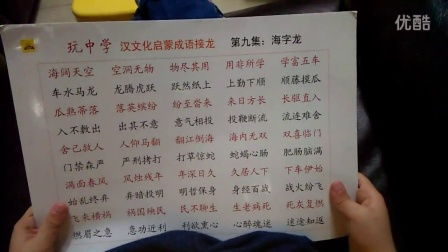 优酷
玩中学 汉文化启蒙成语接龙 第九集：海字龙
海阔天空 空洞无物 物尽其用 用非所学 学富五车
车水马龙 龙腾虎跃 跃然纸上 上勤下顺 顺藤摸瓜
瓜熟蒂落 落英缤纷 纷至沓来 来日方长 长驱直入
入不敷出 出其不意 意气相投 投鞭断流 流连难舍
舍己救人 人仰马翻 翻江倒海 海内无双 双喜临门
门禁森严 严刑拷打 打草惊蛇 蛇蝎心肠 肥肠脑满
满面春风 风烛残年 年深日久 久居人下 下车伊始
始乱终弃 弃暗投明 明哲保身 身经百战 战火纷飞
飞来横祸 祸国殃民 民不聊生 生老病死 死灰复燃
燃眉之急 急功近利 利欲熏心 心醉魂迷 迷途知返